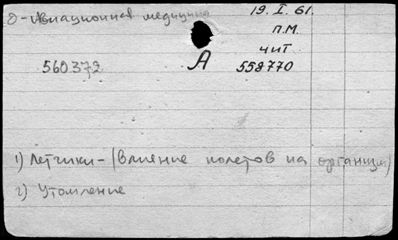 0-Авиационная медицина
19.I.61.
П.М.
чит
560372 А 558770
1) Летчики-(влияние полетов на организм)
2) Утомление